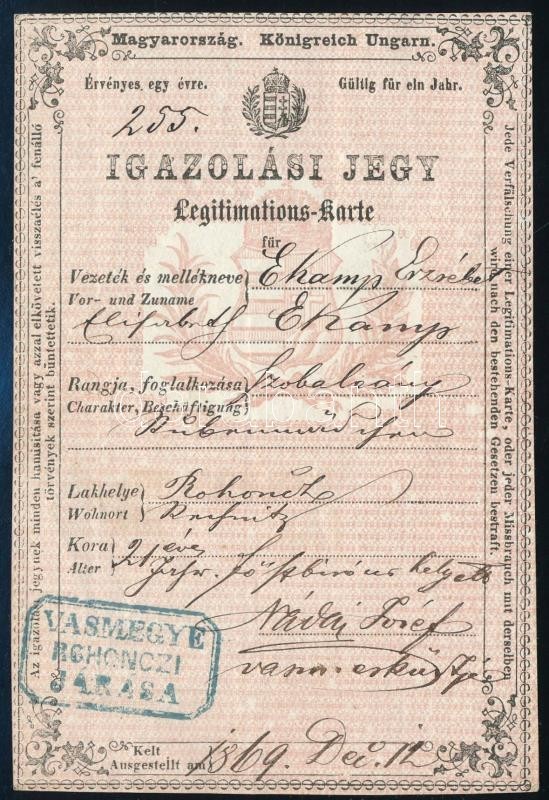 Magyarország. Königreich Ungarn.
Érvényes egy évre. Gültig für ein Jahr.
255.
IGAZOLÁSI JEGY
Legitimations-Karte
für
Vezeték és mellékneve Ekamp Erzsébet
Vor- und Zuname
Elisabeth Ekamp
Rangja, foglalkozása Szobaleány
Charakter, Beschäftigung
Stubenmädchen
Lakhelye Rohoncz
Wohnort Rechnitz
Kora 21 éves
Alter Jahr. főszbiró helyett
Nádaj József
VASMEGYE
ROHONCZI
JÁRÁSA
Kelt
Ausgestellt am 1869 Dec. 12
Az igazolási jegynek minden hamisítása vagy azzal elkövetett visszaélés a' fenálló
törvények szerint büntettetik.
Jede Verfälschung einer Legitimations-Karte, oder jeder Missbrauch mit derselben
wird nach den bestehenden Gesetzen bestraft.